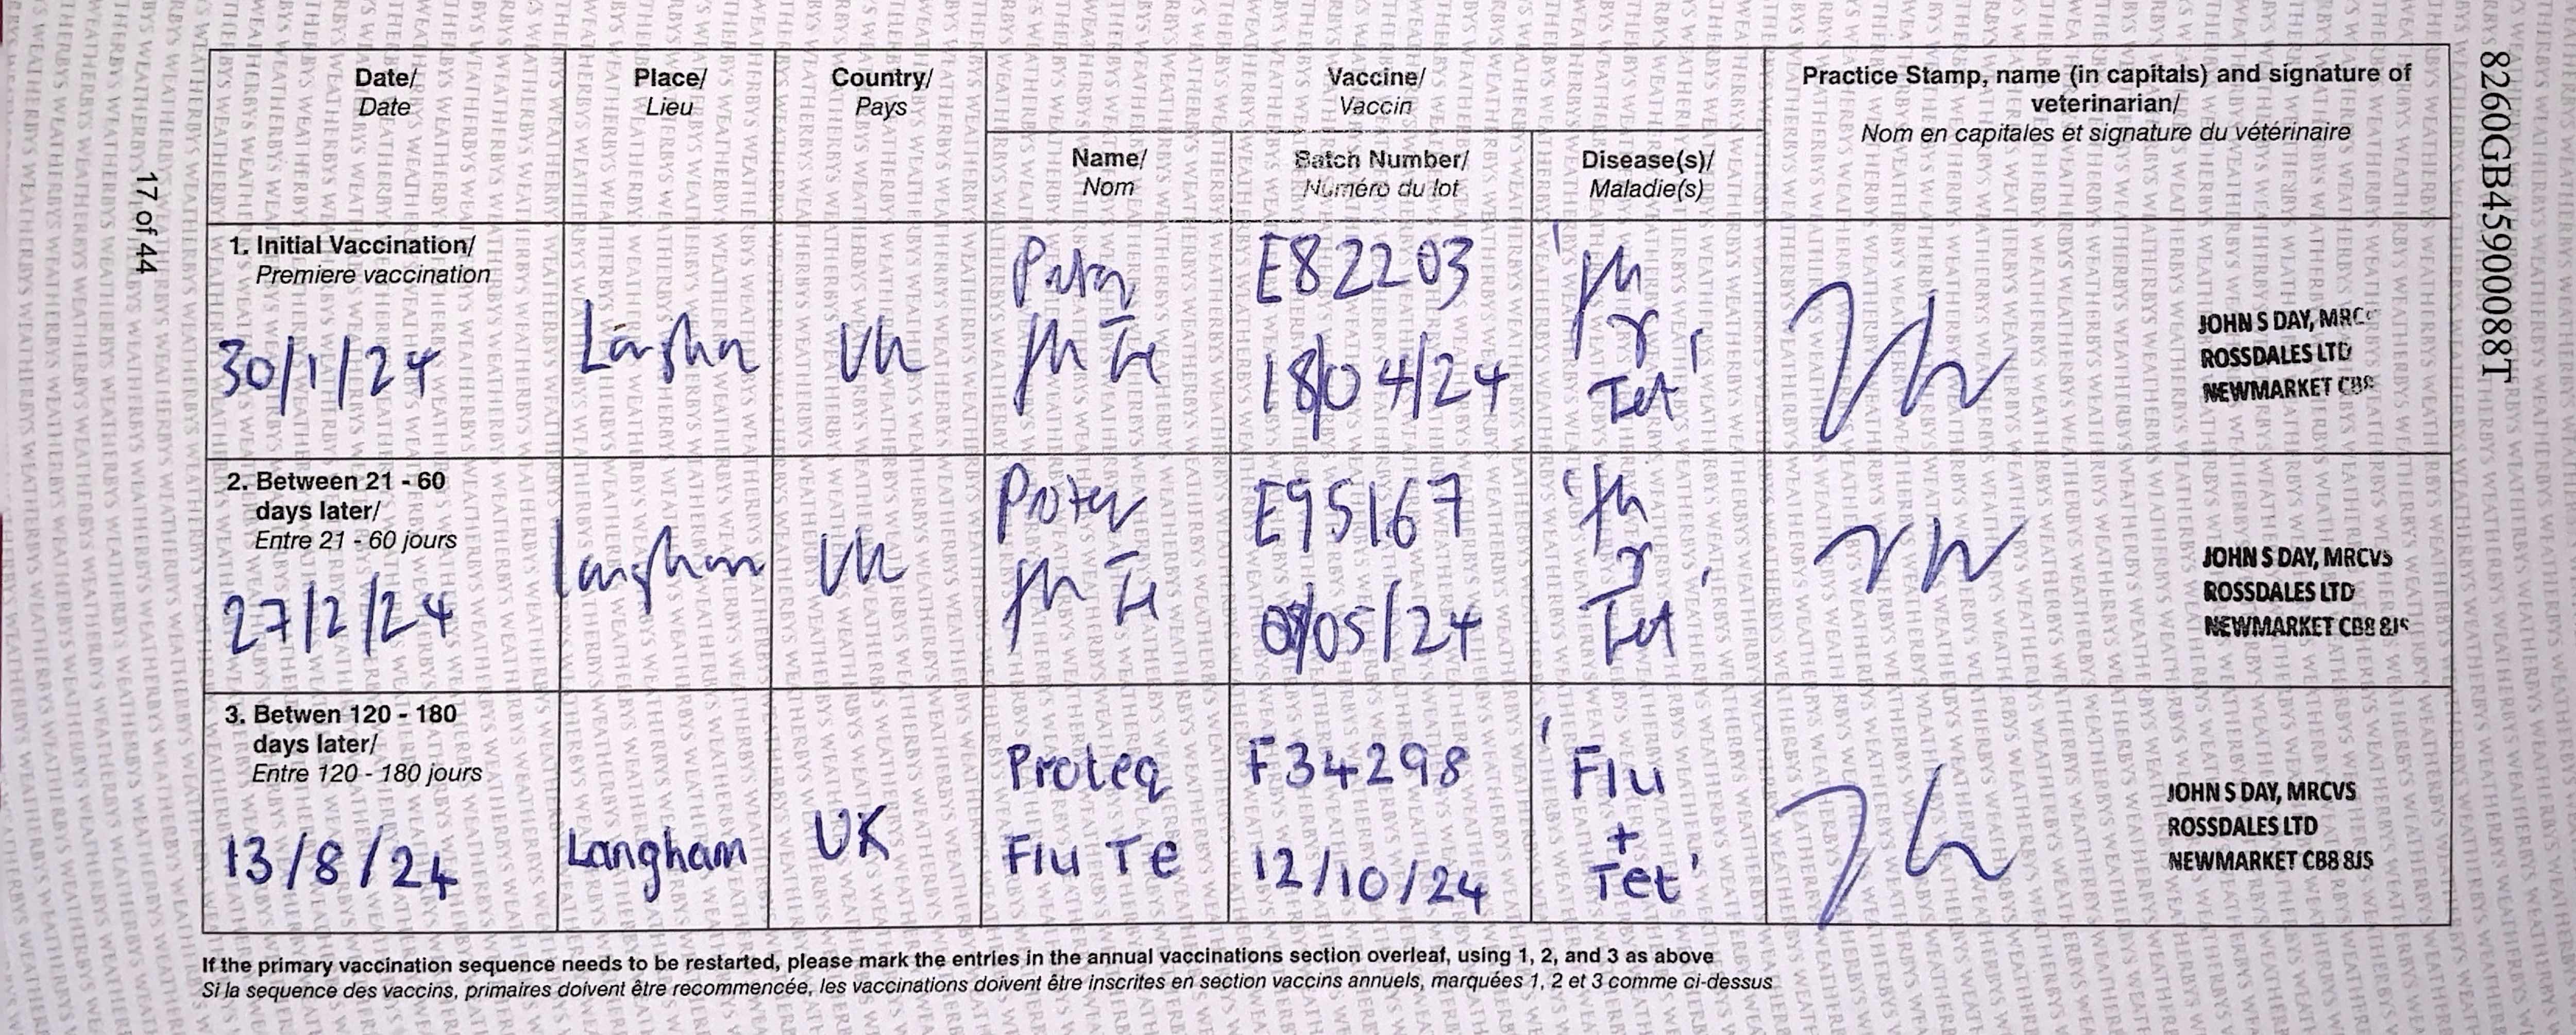 Date/
Date
Place/
Lieu
Country/
Pays
Vaccine/
Vaccin
Practice Stamp, name (in capitals) and signature of
veterinarian/
Nom en capitales et signature du vétérinaire
Name/
Nom
Batch Number/
Numéro du lot
Disease(s)/
Maladie(s)
1. Initial Vaccination/
Premiere vaccination
30/1/24
UK
E82203
18/04/24
Tet'
JOHN S DAY, MRC
ROSSDALES LTD
NEWMARKET CB8
2. Between 21 - 60
days later/
Entre 21 - 60 jours
27/2/24
Langham
UK
E95167
05/24
Tet'
JOHN S DAY, MRCVS
ROSSDALES LTD
NEWMARKET CB8 8JS
3. Betwen 120 - 180
days later/
Entre 120 - 180 jours
13/8/24
Langham
UK
Proteq
Flu Te
F34298
12/10/24
'Flu
+
Tet'
JOHN S DAY, MRCVS
ROSSDALES LTD
NEWMARKET CB8 8JS
If the primary vaccination sequence needs to be restarted, please mark the entries in the annual vaccinations section overleaf, using 1, 2, and 3 as above
Si la sequence des vaccins, primaires doivent être recommencée, les vaccinations doivent être inscrites en section vaccins annuels, marquées 1, 2 et 3 comme ci-dessus
17 of 44
8260GB459000088T
WEATHERBYS